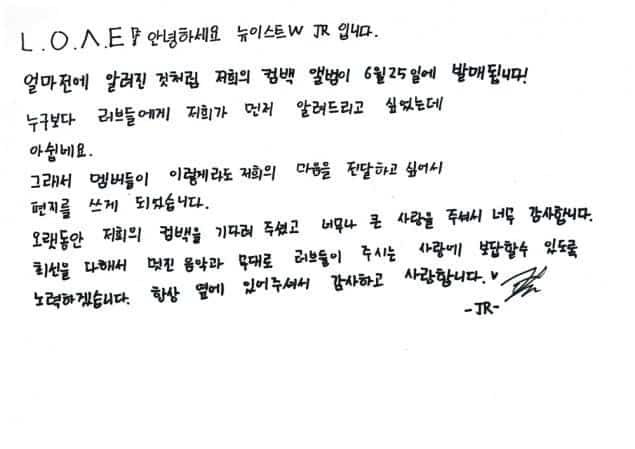 L.O.Λ.E 들 안녕하세요 뉴이스트W JR 입니다.
얼마전에 알려진 것처럼 저희의 컴백 앨범이 6월25일에 발매됩니다!
누구보다 러브들에게 저희가 먼저 알려드리고 싶었는데
아쉽네요.
그래서 멤버들이 이렇게라도 저희의 마음을 전달하고 싶어서
편지를 쓰게 되었습니다.
오랫동안 저희의 컴백을 기다려 주셨고 너무나 큰 사랑을 주셔서 너무 감사합니다.
최선을 다해서 멋진 음악과 무대로 러브들이 주시는 사랑에 보답할수 있도록
노력하겠습니다. 항상 옆에 있어주셔서 감사하고 사랑합니다.♥
-JR-